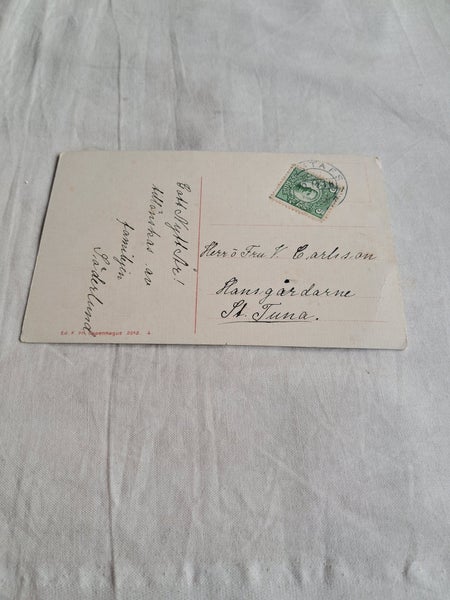 Gott Nytt År!
tillönskas av
familjen
Söderlund
Herr o Fru V. Carlsson
Hansgårdarne
St. Tuna.